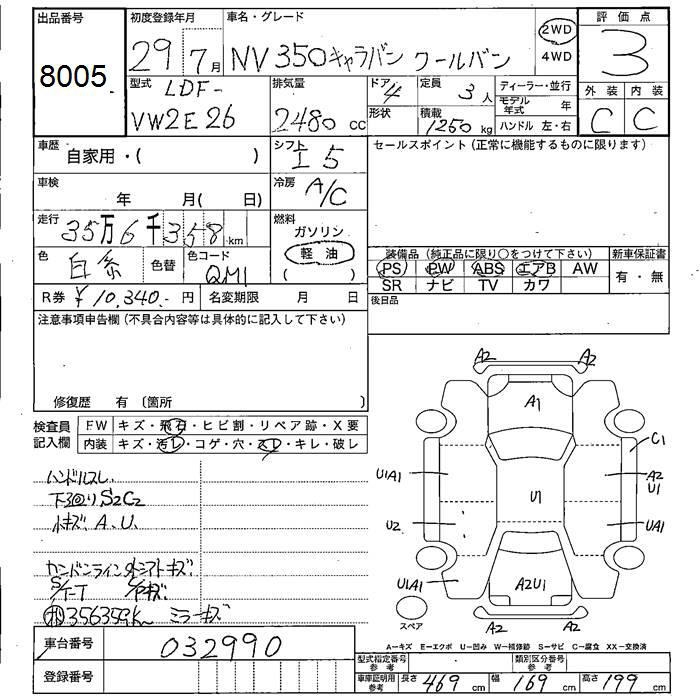 出品番号 初度登録年月 車名・グレード 評価点
8005 29年7月 NV350キャラバン クールバン 2WD 4WD 3
型式 LDF-VW2E26 排気量 2480cc ドア 4 形状 定員 3人 積載 1250kg
ディーラー・並行 モデル年式 年 ハンドル 左・右
外装 C 内装 C
車歴 自家用・( ) シフト I5
セールスポイント(正常に機能するものに限ります)
車検 年 月( 日) 冷房 A/C
走行 35万6千358km 燃料 ガソリン 軽油 ( )
色 白系 色替 色コード QM1
装備品(純正品に限り○をつけて下さい) 新車保証書
PS PW ABS エアB AW 有・無
SR ナビ TV カワ
R券 ¥10,340.-円 名変期限 月 日 後日品
注意事項申告欄(不具合内容等は具体的に記入して下さい)
修復歴 有 〔箇所 〕
検査員記入欄 FW キズ・飛石・ヒビ割・リペア跡・X要
内装 キズ・汚レ・コゲ・穴・スレ・キレ・破レ
ハンドルスレ
下回りS2C2
小キズ A、U
356359km ミラーキズ
A2 A2
A1
C1
U1A1 A2 U1
U1
U2 UA1
U1A1 A2U1
スペア A2 A2
A-キズ E-エクボ U-凹み W-補修跡 S-サビ C-腐食 XX-交換済
車台番号 032990
型式指定番号 参考 類別区分番号 参考
登録番号
車庫証明用 参考 長さ 469cm 幅 169cm 高さ 199cm